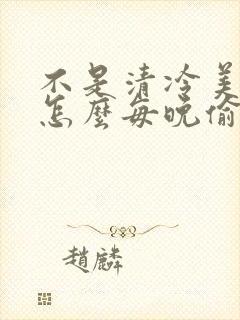 不是清冷美
怎麼每晚偷
趙麟